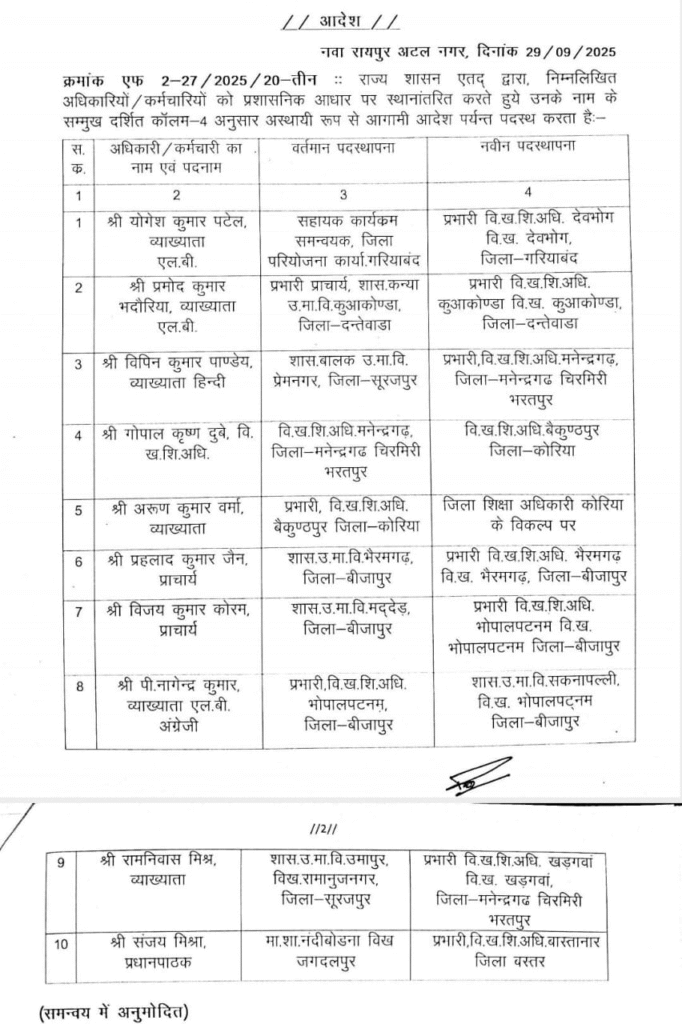 // आदेश //
नवा रायपुर अटल नगर, दिनांक 29/09/2025
क्रमांक एफ 2-27/2025/20-तीन :: राज्य शासन एतद् द्वारा, निम्नलिखित
अधिकारियों/कर्मचारियों को प्रशासनिक आधार पर स्थानांतरित करते हुये उनके नाम के
सम्मुख दर्शित कॉलम-4 अनुसार अस्थायी रूप से आगामी आदेश पर्यन्त पदस्थ करता है:-
स. अधिकारी/कर्मचारी का वर्तमान पदस्थापना नवीन पदस्थापना
क. नाम एवं पदनाम
1 2 3 4
1 श्री योगेश कुमार पटेल, सहायक कार्यकम प्रभारी वि.ख.शि.अधि. देवभोग
व्याख्याता समन्वयक, जिला वि.ख. देवभोग,
एल.बी. परियोजना कार्या.गरियाबंद जिला-गरियाबंद
2 श्री प्रमोद कुमार प्रभारी प्राचार्य, शास.कन्या प्रभारी वि.ख.शि.अधि.
भदौरिया, व्याख्याता उ.मा.वि.कुआकोण्डा, कुआकोण्डा वि.ख. कुआकोण्डा,
एल.बी. जिला-दन्तेवाडा जिला-दन्तेवाडा
3 श्री विपिन कुमार पाण्डेय, शास.बालक उ.मा.वि. प्रभारी,वि.ख.शि.अधि.मनेन्द्रगढ़,
व्याख्याता हिन्दी प्रेमनगर, जिला-सूरजपुर जिला-मनेन्द्रगढ चिरमिरी
भरतपुर
4 श्री गोपाल कृष्ण दुबे, वि. वि.ख.शि.अधि.मनेन्द्रगढ़, वि.ख.शि.अधि.बैकुण्ठपुर
ख.शि.अधि. जिला-मनेन्द्रगढ चिरमिरी जिला-कोरिया
भरतपुर
5 श्री अरूण कुमार वर्मा, प्रभारी, वि.ख.शि.अधि. जिला शिक्षा अधिकारी कोरिया
व्याख्याता बैकुण्ठपुर जिला-कोरिया के विकल्प पर
6 श्री प्रहलाद कुमार जैन, शास.उ.मा.वि.भैरमगढ़, प्रभारी वि.ख.शि.अधि. भैरमगढ़
प्राचार्य जिला-बीजापुर वि.ख. भैरमगढ़, जिला-बीजापुर
7 श्री विजय कुमार कोरम, शास.उ.मा.वि.मद्देड़, प्रभारी वि.ख.शि.अधि.
प्राचार्य जिला-बीजापुर भोपालपटनम वि.ख.
भोपालपटनम जिला-बीजापुर
8 श्री पी.नागेन्द्र कुमार, प्रभारी,वि.ख.शि.अधि. शास.उ.मा.वि.सकनापल्ली,
व्याख्याता एल.बी. भोपालपटनम, वि.ख. भोपालपट्नम
अंग्रेजी जिला-बीजापुर जिला-बीजापुर
//2//
9 श्री रामनिवास मिश्र, शास.उ.मा.वि.उमापुर, प्रभारी वि.ख.शि.अधि. खड़गवां
व्याख्याता विख.रामानुजनगर, वि.ख. खड़गवां,
जिला-सूरजपुर जिला-मनेन्द्रगढ चिरमिरी
भरतपुर
10 श्री संजय मिश्रा, मा.शा.नंदीबोडना विख प्रभारी,वि.ख.शि.अधि.बास्तानार
प्रधानपाठक जगदलपुर जिला बस्तर
(समन्वय में अनुमोदित)